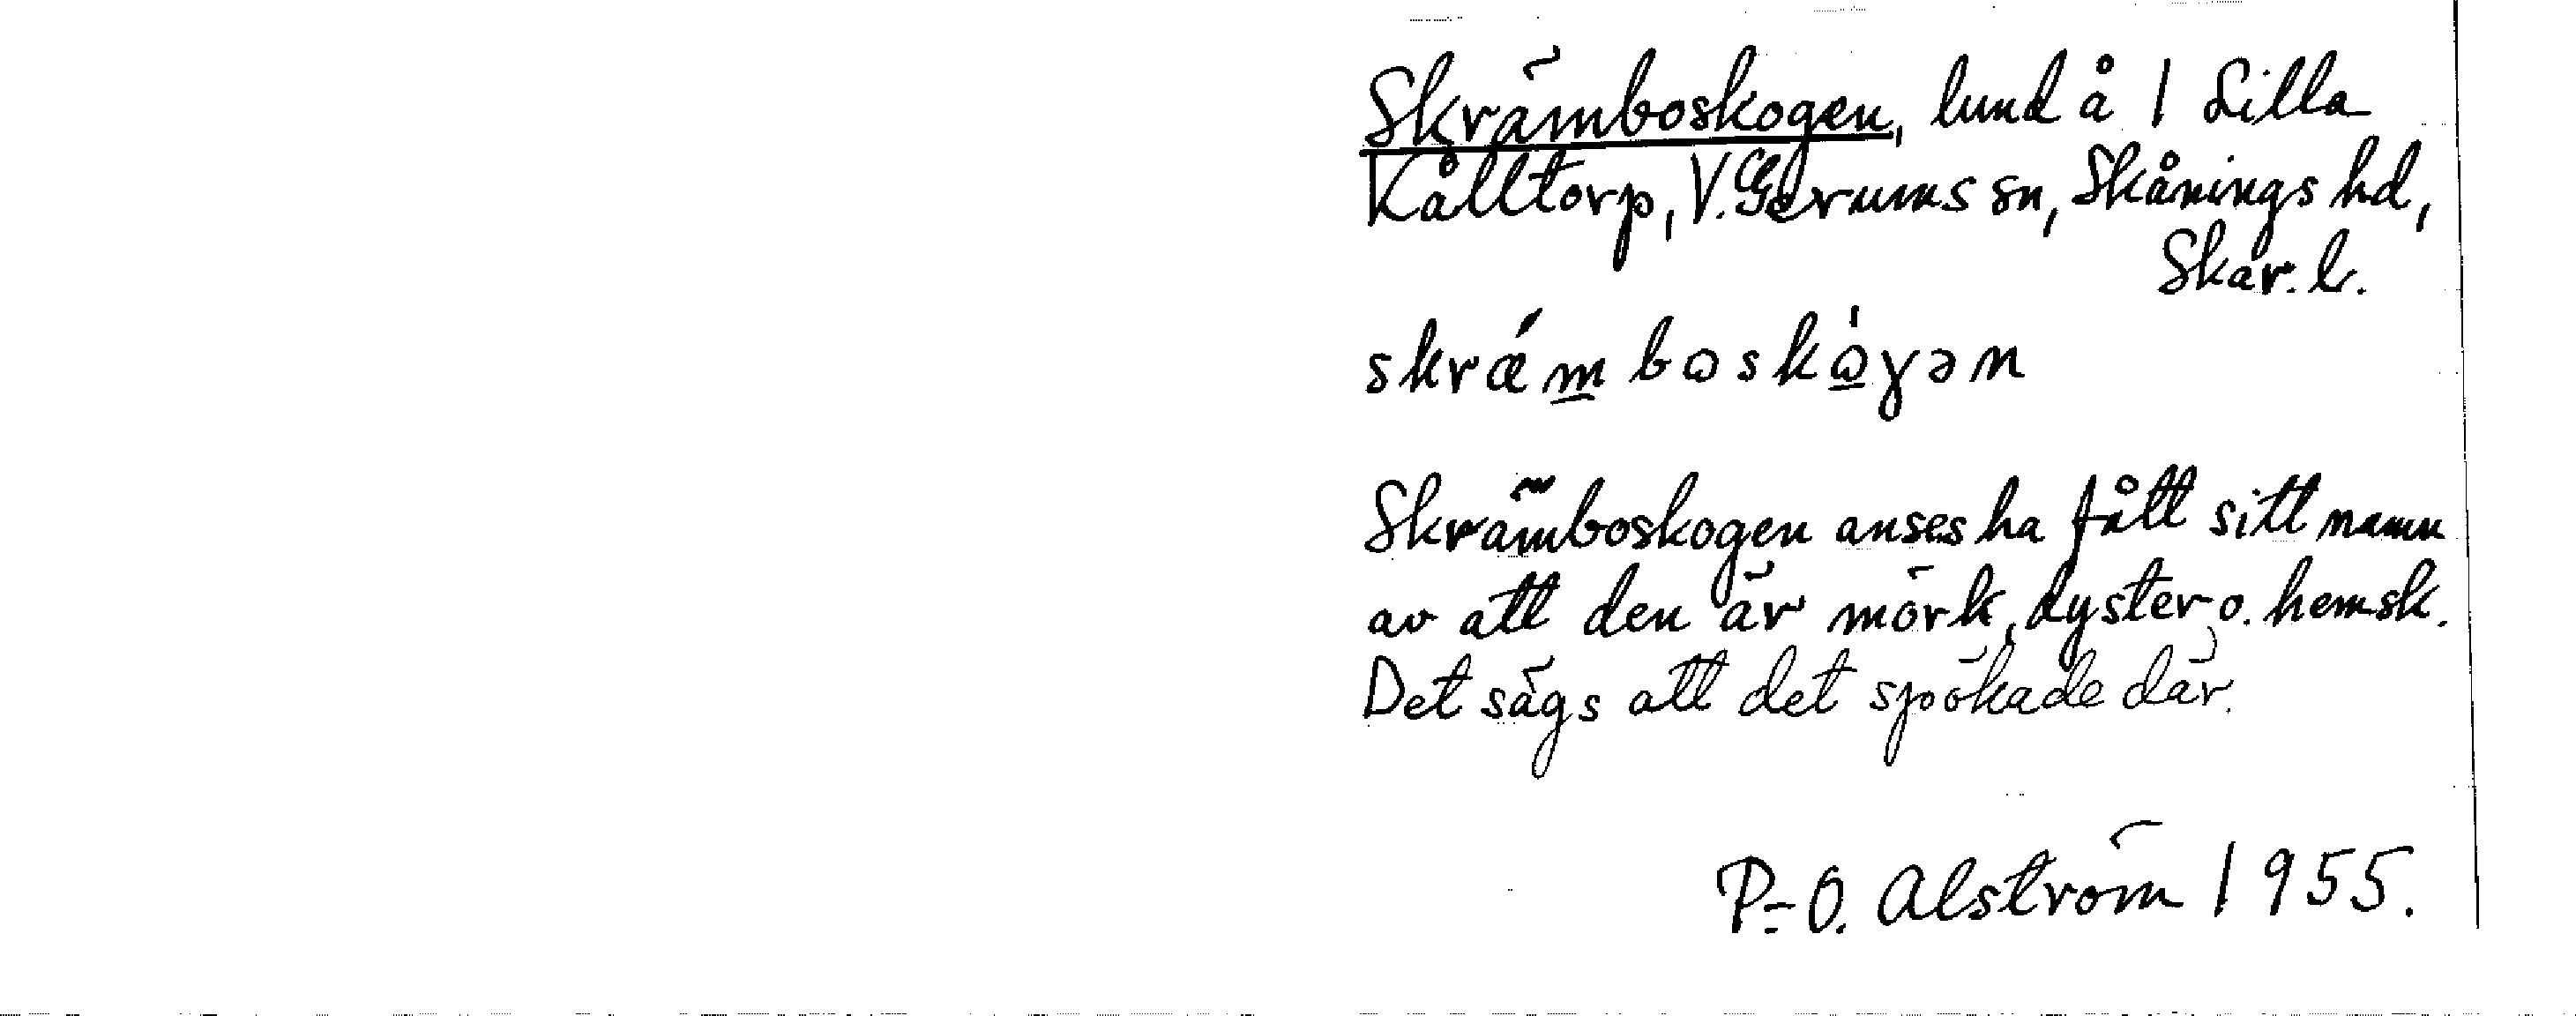 Skrämboskogen, lund å 1 Lilla
Kålltorp, V. Gerums sn, Skånings hd,
Skar. l.
skrǽm̲bɷskɷ̲̀γən
Skrämboskogen anses ha fått sitt namn
av att den är mörk, dyster o. hemsk.
Det sägs att det spökade där.
P.-O. Alström 1955.